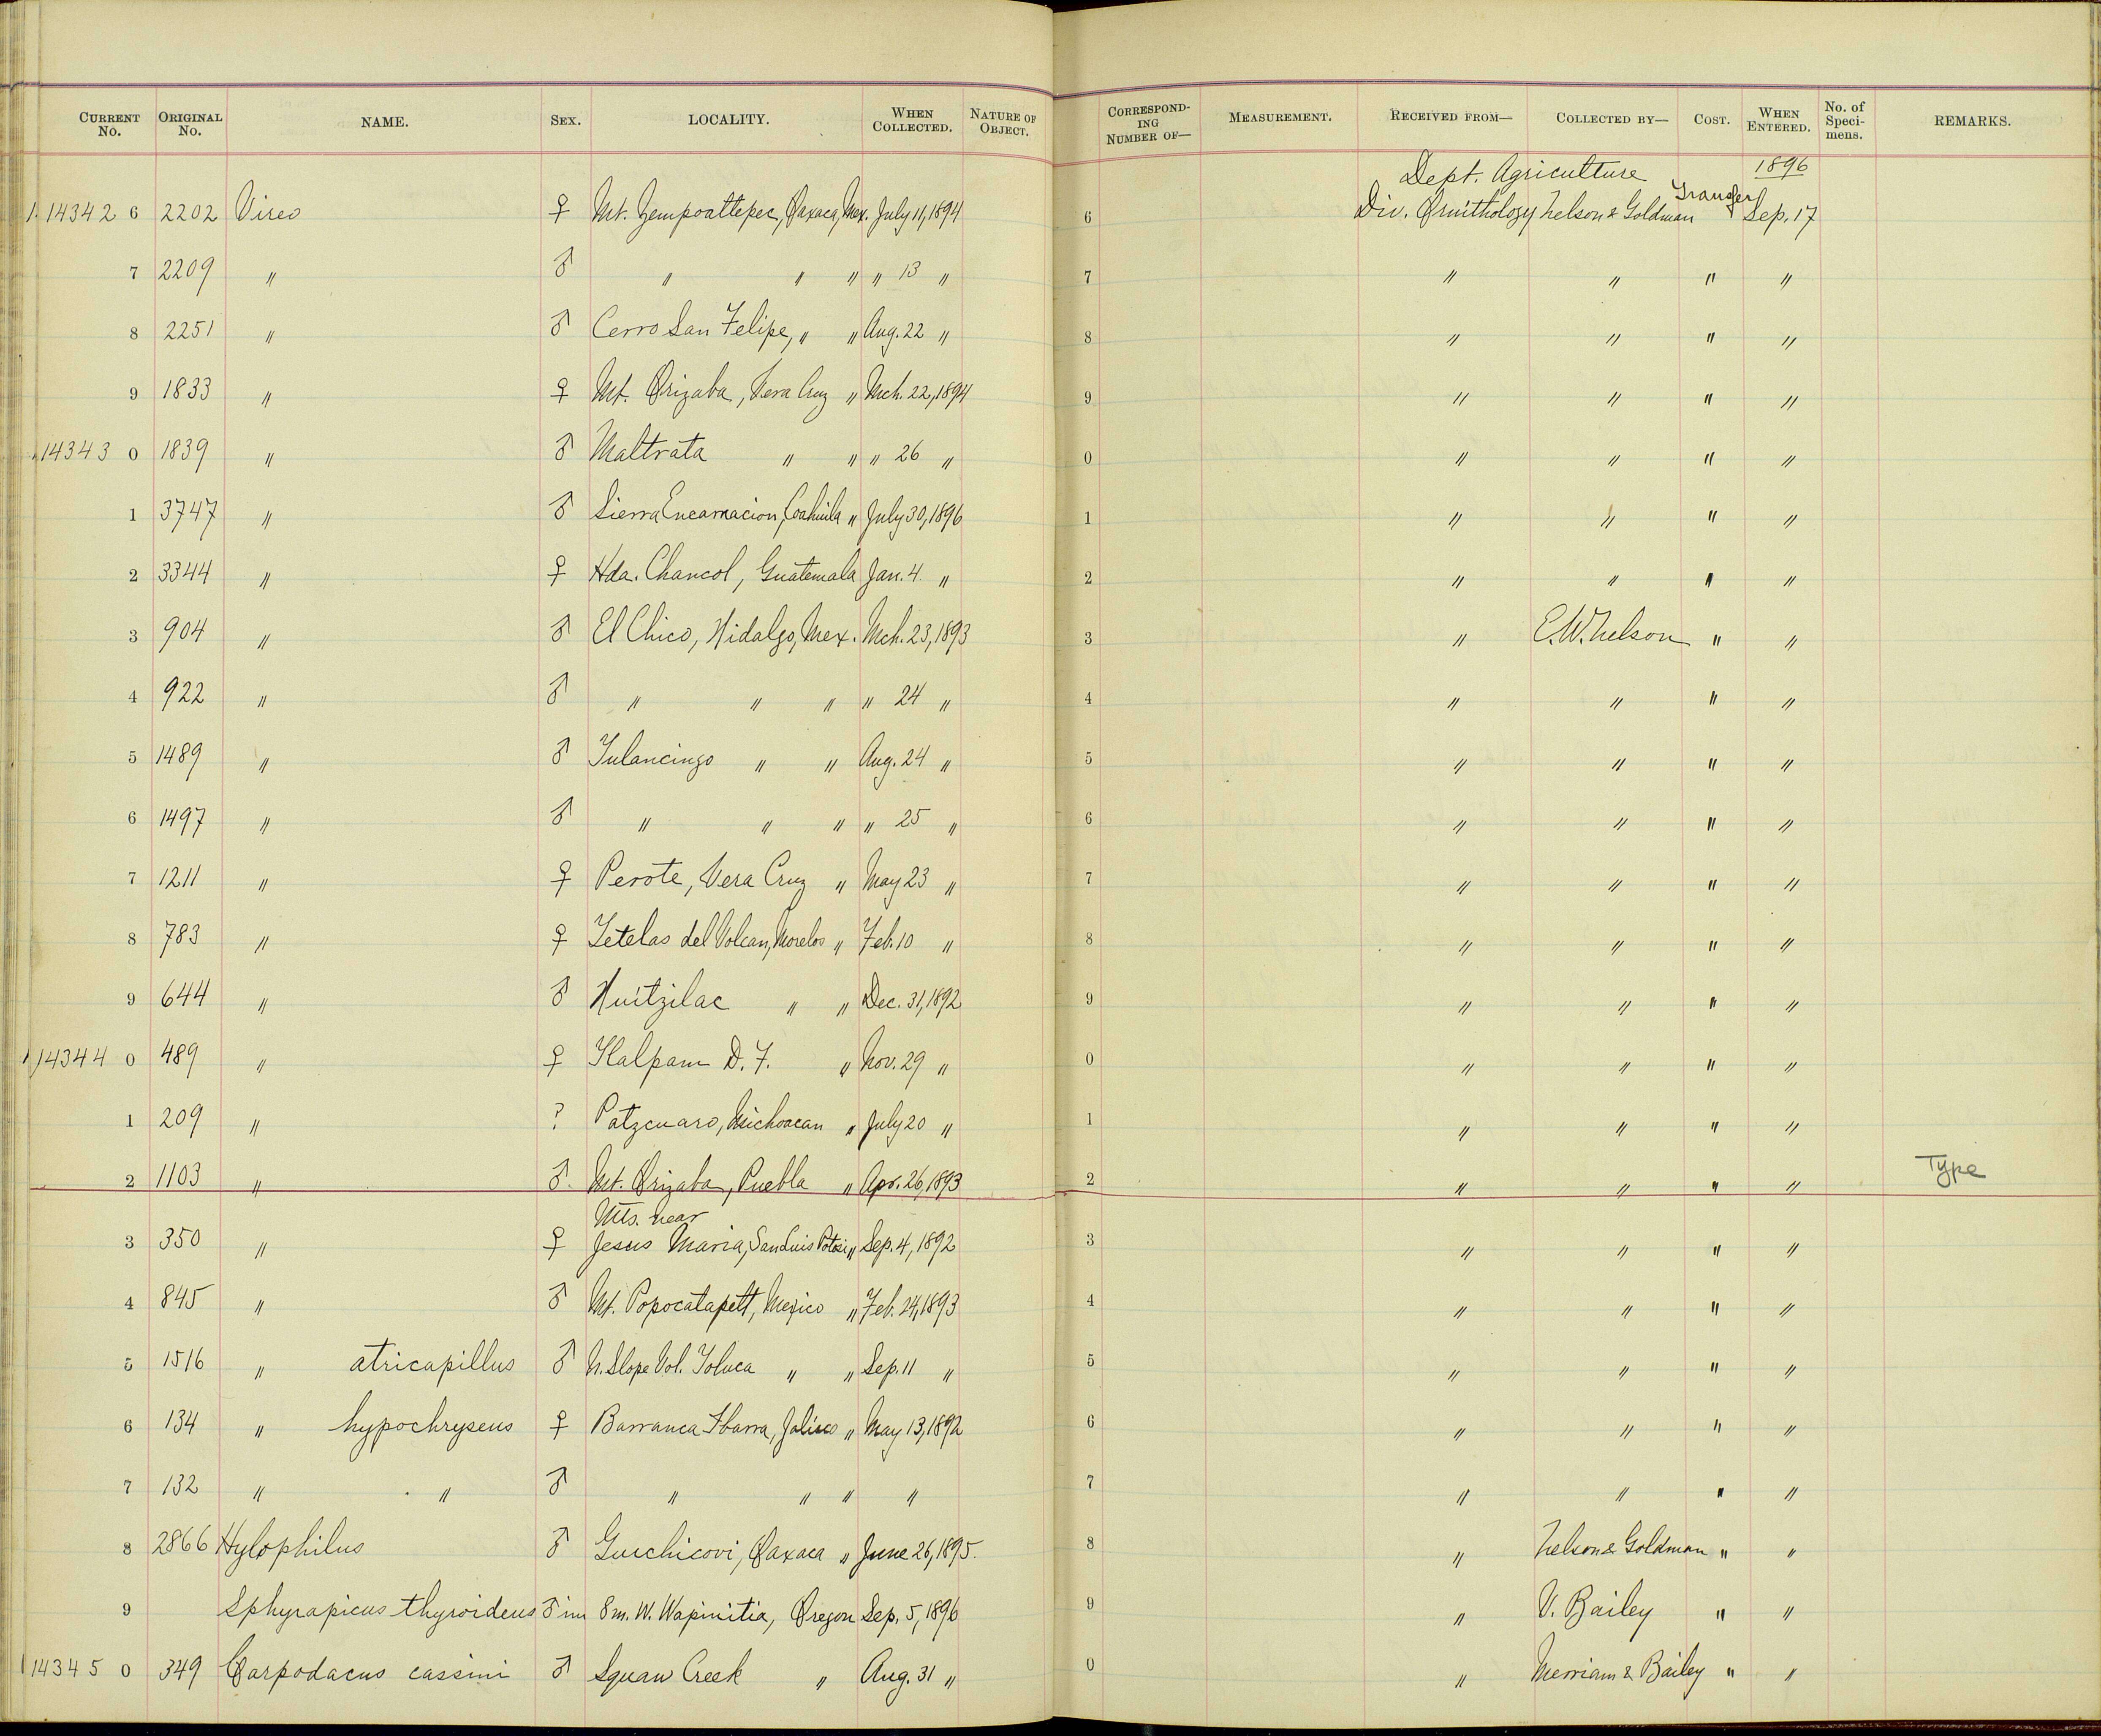 CURRENT NO. ORIGINAL NO. NAME. SEX. LOCALITY. WHEN COLLECTED. NATURE OF OBJECT. CORRESPONDING NUMBER OF— MEASUREMENT. RECEIVED FROM— COLLECTED BY— COST. WHEN ENTERED. No. of Specimens. REMARKS.
Dept. Agriculture 1896
14342 6 2202 Vireo ♀ Mt. Zempoaltepec, Oaxaca, Mex. July 11, 1894 6 Div. Ornithology Nelson & Goldman Transfer Sep. 17
7 2209 " ♂ " " " " 13 " 7 " " " "
8 2251 " ♂ Cerro San Felipe, " " Aug. 22 " 8 " " " "
9 1833 " ♀ Mt. Orizaba, Vera Cruz " Mch. 22, 1894 9 " " " "
14343 0 1839 " ♂ Maltrata " " " 26 " 0 " " " "
1 3747 " ♂ Sierra Encarnacion, Coahuila " July 30, 1896 1 " " " "
2 3344 " ♀ Hda. Chancol, Guatemala Jan. 4 " 2 " " " "
3 904 " ♂ El Chico, Hidalgo, Mex. Mch. 23, 1893 3 " E. W. Nelson " "
4 922 " ♂ " " " " 24 " 4 " " " "
5 1489 " ♂ Tulancingo " " Aug. 24 " 5 " " " "
6 1497 " ♂ " " " " 25 " 6 " " " "
7 1211 " ♀ Perote, Vera Cruz " May 23 " 7 " " " "
8 783 " ♀ Tetelas del Volcan, Morelos " Feb. 10 " 8 " " " "
9 644 " ♂ Huitzilac " " Dec. 31, 1892 9 " " " "
14344 0 489 " ♀ Tlalpam D. F. " Nov. 29 " 0 " " " "
1 209 " ? Patzcuaro, Michoacan " July 20 " 1 " " " "
2 1103 " ♂ Mt. Orizaba, Puebla " Apr. 26, 1893 2 " " " " Type
Mts. near
3 350 " ♀ Jesus Maria, San Luis Potosi " Sep. 4, 1892 3 " " " "
4 845 " ♂ Mt. Popocatapetl, Mexico " Feb. 24, 1893 4 " " " "
5 1516 " atricapillus ♂ N. Slope Vol. Toluca " " Sep. 11 " 5 " " " "
6 134 " hypochryseus ♀ Barranca Ibarra, Jalisco " May 13, 1892 6 " " " "
7 132 " " ♂ " " " " 7 " " " "
8 2866 Hylophilus ♂ Guichicovi, Oaxaca " June 26, 1895. 8 " Nelson & Goldman " "
9 Sphyrapicus thyroideus ♂ im 8 m. W. Wapinitia, Oregon Sep. 5, 1896 9 " V. Bailey " "
14345 0 349 Carpodacus cassini ♂ Squaw Creek " Aug. 31 " 0 " Merriam & Bailey " "